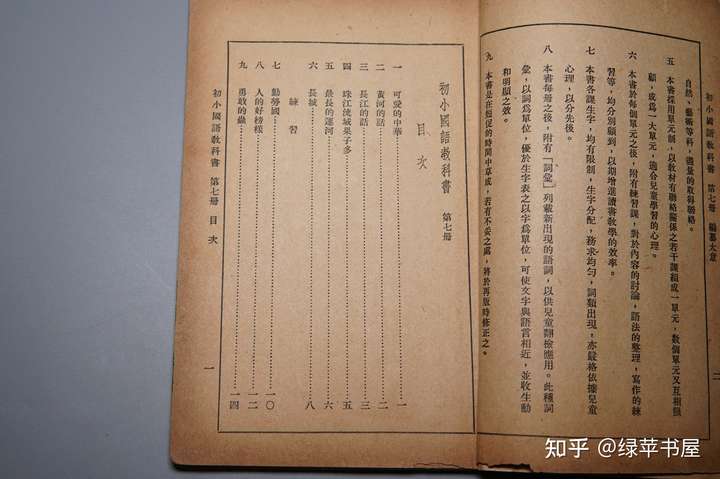 初小國語教科書 第七冊 編纂大意
二
自然、藝術等科,盡量的取得聯絡。
五 本書採用單元制,以教材有聯絡關係之若干課組成一單元,數個單元又互相照
顧,成爲一大單元,適合兒童學習的心理。
六 本書於每個單元之後,附有練習課,對於內容的討論,語法的整理,寫作的練
習等,均分別顧到,以期增進讀書教學的效率。
七 本書各課生字,均有限制,生字分配,務求均勻,詞類出現,亦嚴格依據兒童
心理,以分先後。
八 本書每冊之後,附有「詞彙」列載新出現的語詞,以供兒童翻檢應用。此種詞
彙,以詞爲單位,優於生字表之以字爲單位,可使文字與語言相近,並收生動
和明顯之效。
九 本書是在倉促的時間中草成,若有不妥之處,將於再版時修正之。
初小國語教科書 第七冊
目次
一 可愛的中華 一
二 黃河的話 二
三 長江的話 三
四 珠江流域果子多 五
五 最長的運河 六
六 長城 八
練習
七 勤勞國 一〇
八 人的好榜樣 一二
九 勇敢的蟲 一四
初小國語教科書 第七冊 目次
一
知乎 @绿苹书屋